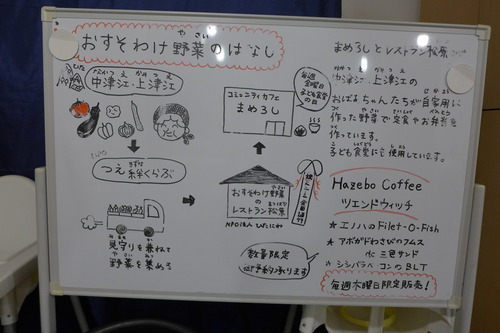 おすそわけ野菜のはなし
中津江・上津江
つえ絆くらぶ
見守りを兼ねて
野菜を集める
コミュニティカフェ
まめろし
毎週
金曜日
子ども食堂
の日
おすそわけ野菜
の
レストラン松原
NPO法人 ひたにわ
数量限定
ご予約承ります
まめろしとレストラン松原
中津江・上津江の
おばあちゃんたちが自家用に
作った野菜で定食やお弁当を
作っています。
子ども食堂にも使用しています。
Hazebo Coffee
ツエンドウィッチ
★ エノハのFilet-O-Fish
★ アボガドわさびのフムス
三色サンド
★ シシバラベーコンのBLT
毎週木曜日限定販売!